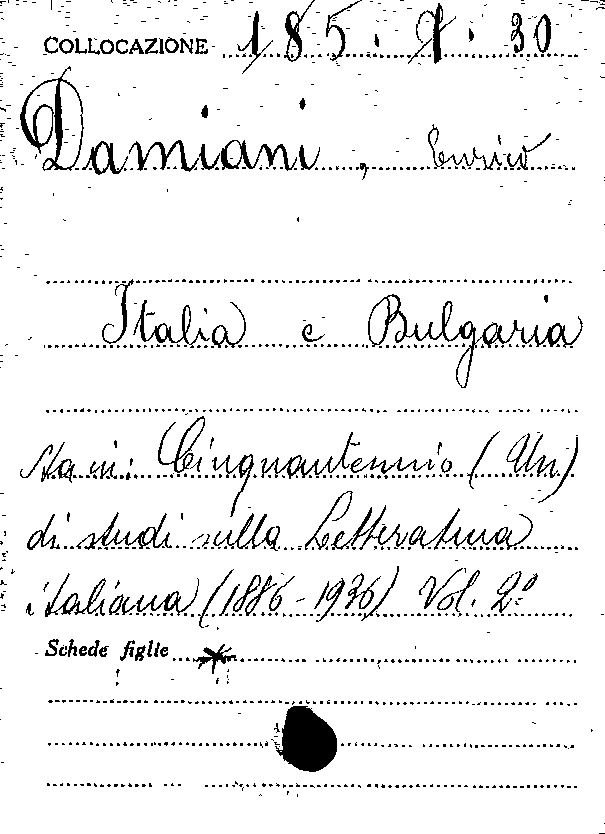 COLLOCAZIONE 185. 9. 30
Damiani, Enrico
Italia e Bulgaria
sta in: Cinquantennio (Un)
di studi sulla Letteratura
italiana (1886-1936) Vol. 2º
Schede figlie *